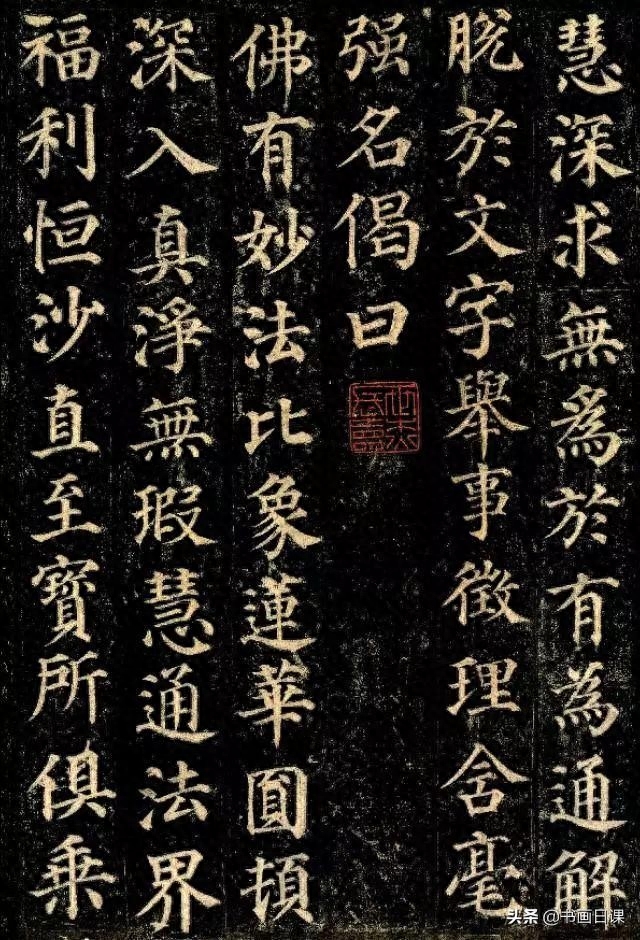 慧深求無為於有為通解
脫於文字舉事徵理含毫
强名偈曰
佛有妙法比象蓮華圓頓
深入真淨無瑕慧通法界
福利恒沙直至寶所俱乘
头条 @书画日课